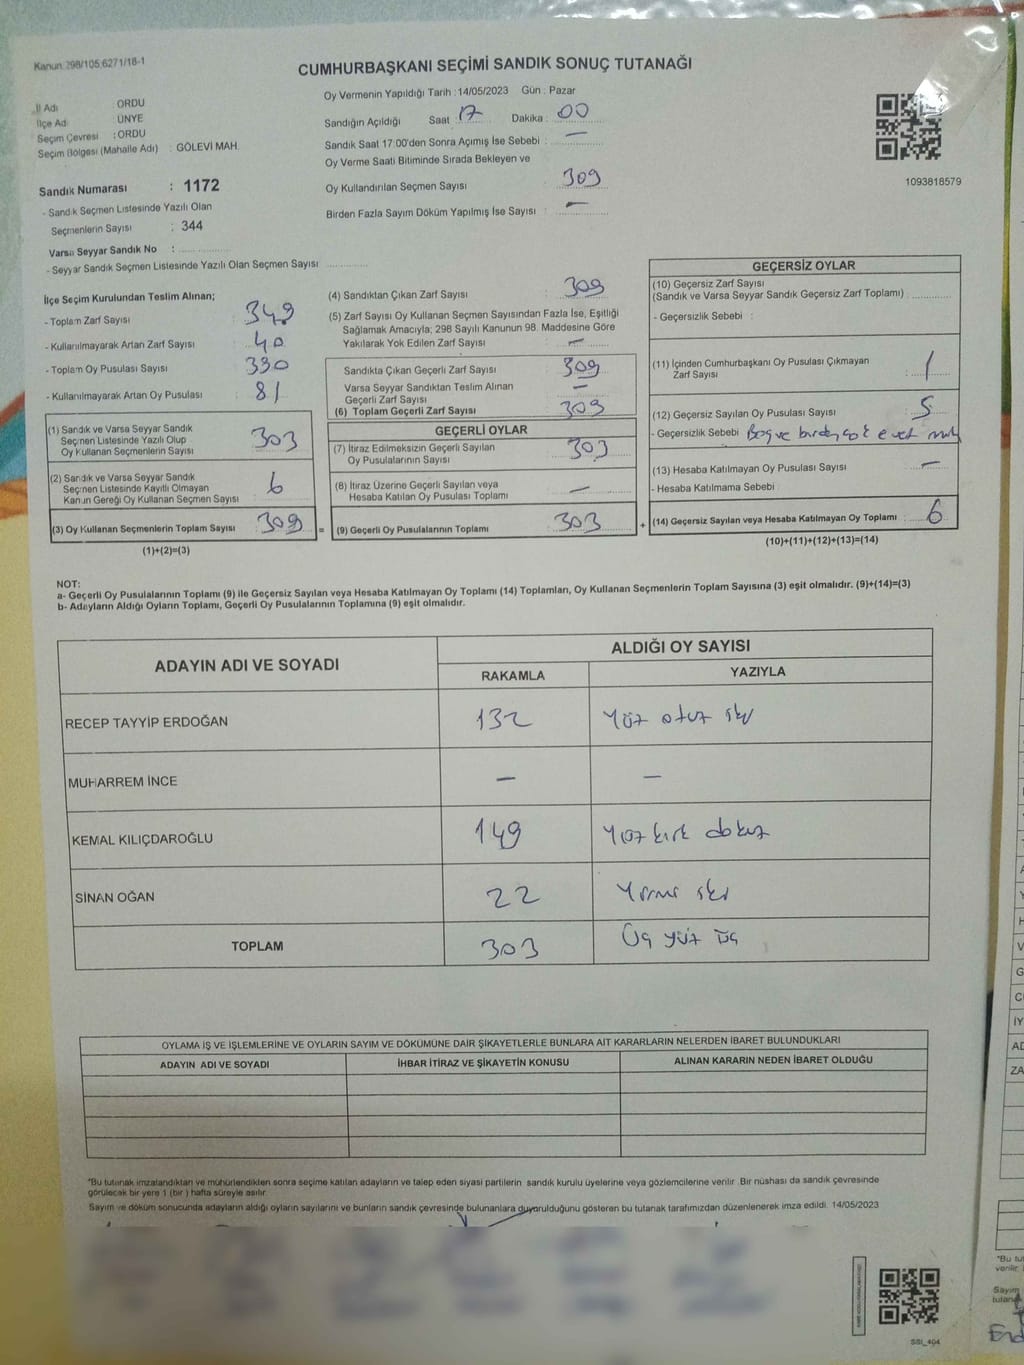 Kanun 298/105,6271/18-1
CUMHURBAŞKANI SEÇİMİ SANDIK SONUÇ TUTANAĞI
İl Adı ORDU
İlçe Adı ÜNYE
Seçim Çevresi : ORDU
Seçim Bölgesi (Mahalle Adı) : GÖLEVİ MAH.
Sandık Numarası : 1172
- Sandık Seçmen Listesinde Yazılı Olan
Seçmenlerin Sayısı : 344
Varsa Seyyar Sandık No :
- Seyyar Sandık Seçmen Listesinde Yazılı Olan Seçmen Sayısı
Oy Vermenin Yapıldığı Tarih : 14/05/2023 Gün : Pazar
Sandığın Açıldığı Saat : 17 Dakika : 00
Sandık Saat 17:00'den Sonra Açımış İse Sebebi : —
Oy Verme Saati Bitiminde Sırada Bekleyen ve
Oy Kullandırılan Seçmen Sayısı : 309
Birden Fazla Sayım Döküm Yapılmış İse Sayısı : —
1093818579
İlçe Seçim Kurulundan Teslim Alınan;
- Toplam Zarf Sayısı : 349
- Kullanılmayarak Artan Zarf Sayısı : 40
- Toplam Oy Pusulası Sayısı : 330
- Kullanılmayarak Artan Oy Pusulası : 81
(1) Sandık ve Varsa Seyyar Sandık
Seçmen Listesinde Yazılı Olup
Oy Kullanan Seçmenlerin Sayısı 303
(2) Sandık ve Varsa Seyyar Sandık
Seçmen Listesinde Kayıtlı Olmayan
Kanun Gereği Oy Kullanan Seçmen Sayısı 6
(3) Oy Kullanan Seçmenlerin Toplam Sayısı 309 =
(1)+(2)=(3)
(4) Sandıktan Çıkan Zarf Sayısı : 309
(5) Zarf Sayısı Oy Kullanan Seçmen Sayısından Fazla İse, Eşitliği
Sağlamak Amacıyla; 298 Sayılı Kanunun 98. Maddesine Göre
Yakılarak Yok Edilen Zarf Sayısı : —
Sandıkta Çıkan Geçerli Zarf Sayısı : 309
Varsa Seyyar Sandıktan Teslim Alınan
Geçerli Zarf Sayısı : —
(6) Toplam Geçerli Zarf Sayısı : 309
GEÇERLİ OYLAR
(7) İtiraz Edilmeksizin Geçerli Sayılan
Oy Pusulalarının Sayısı : 303
(8) İtiraz Üzerine Geçerli Sayılan veya
Hesaba Katılan Oy Pusulası Toplamı : —
(9) Geçerli Oy Pusulalarının Toplamı : 303 +
GEÇERSİZ OYLAR
(10) Geçersiz Zarf Sayısı
(Sandık ve Varsa Seyyar Sandık Geçersiz Zarf Toplamı) :
- Geçersizlik Sebebi :
(11) İçinden Cumhurbaşkanı Oy Pusulası Çıkmayan
Zarf Sayısı : 1
(12) Geçersiz Sayılan Oy Pusulası Sayısı : 5
- Geçersizlik Sebebi Boş ve birden çok evet
(13) Hesaba Katılmayan Oy Pusulası Sayısı : —
- Hesaba Katılmama Sebebi
(14) Geçersiz Sayılan veya Hesaba Katılmayan Oy Toplamı : 6
(10)+(11)+(12)+(13)=(14)
NOT:
a- Geçerli Oy Pusulalarının Toplamı (9) ile Geçersiz Sayılan veya Hesaba Katılmayan Oy Toplamı (14) Toplamları, Oy Kullanan Seçmenlerin Toplam Sayısına (3) eşit olmalıdır. (9)+(14)=(3)
b- Adayların Aldığı Oyların Toplamı, Geçerli Oy Pusulalarının Toplamına (9) eşit olmalıdır.
ADAYIN ADI VE SOYADI ALDIĞI OY SAYISI
RAKAMLA YAZIYLA
RECEP TAYYİP ERDOĞAN 132 Yüz otuz iki
MUHARREM İNCE — —
KEMAL KILIÇDAROĞLU 149 Yüz kırk dokuz
SİNAN OĞAN 22 Yirmi iki
TOPLAM 303 Üç yüz üç
OYLAMA İŞ VE İŞLEMLERİNE VE OYLARIN SAYIM VE DÖKÜMÜNE DAİR ŞİKAYETLERLE BUNLARA AİT KARARLARIN NELERDEN İBARET BULUNDUKLARI
ADAYIN ADI VE SOYADI İHBAR İTİRAZ VE ŞİKAYETİN KONUSU ALINAN KARARIN NEDEN İBARET OLDUĞU
*Bu tutanak imzalandıktan ve mühürlendikten sonra seçime katılan adayların ve talep eden siyasi partilerin sandık kurulu üyelerine veya gözlemcilerine verilir. Bir nüshası da sandık çevresinde
görülecek bir yere 1 (bir) hafta süreyle asılır.
Sayım ve döküm sonucunda adayların aldığı oyların sayılarını ve bunların sandık çevresinde bulunanlara duyurulduğunu gösteren bu tutanak tarafımızdan düzenlenerek imza edildi. 14/05/2023